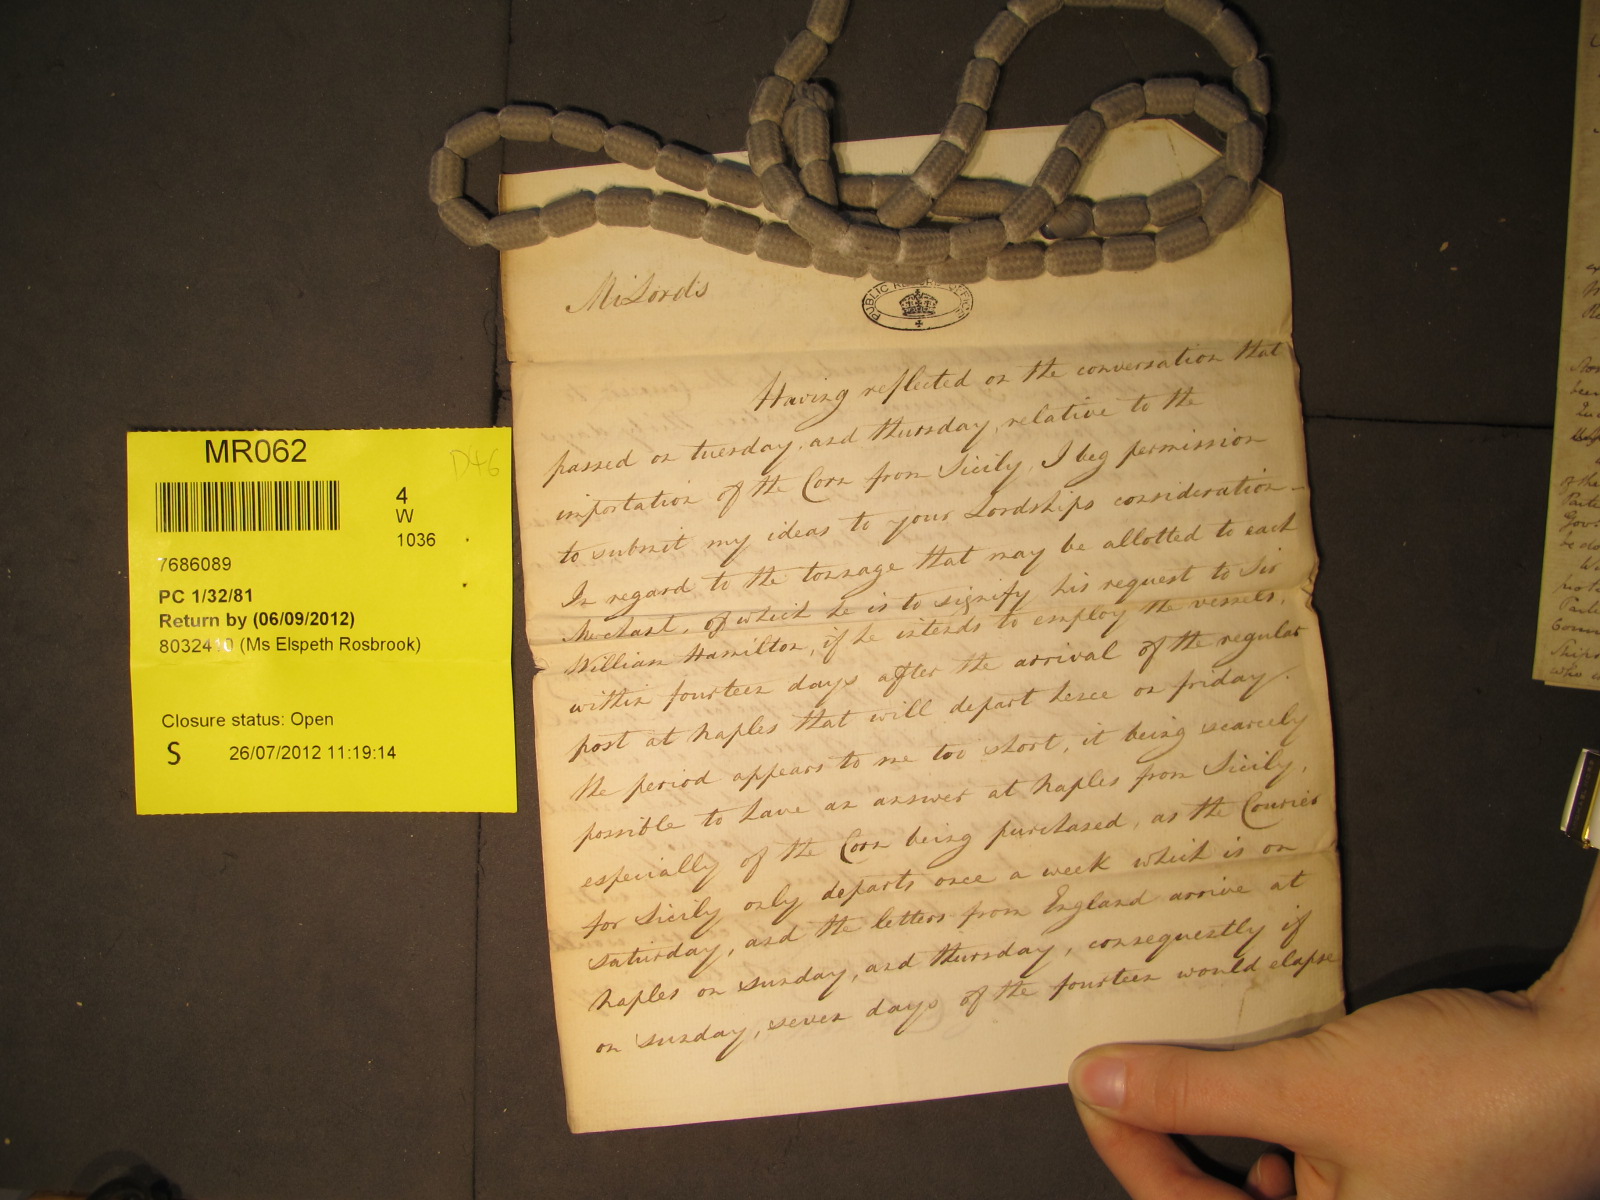 MR062
D46
4
W
1036
7686089
PC 1/32/81
Return by (06/09/2012)
8032410 (Ms Elspeth Rosbrook)
Closure status: Open
S 26/07/2012 11:19:14
PUBLIC RECORD OFFICE
MiLords
Having reflected on the conversation that
passed on tuesday, and thursday, relative to the
importation of the Corn from Sicily, I beg permission
to submit my ideas to your Lordships consideration-
In regard to the tonnage that may be allotted to each
Merchant, of which he is to signify his request to Sir
William Hamilton, if he intends to employ the vessels,
within fourteen days after the arrival of the regular
post at Naples that will depart hence on friday.
the period appears to me too short, it being scarcely
possible to have an answer at Naples from Sicily,
especially of the Corn being purchased, as the Courier
for Sicily only departs once a week which is on
saturday, and the letters from England arrive at
Naples on sunday, and thursday, consequently if
on sunday, seven days of the fourteen would elapse